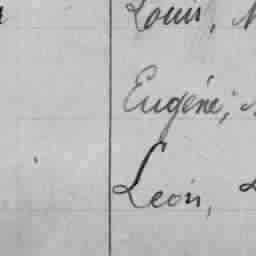 Louis,
Eugène,
Léon,